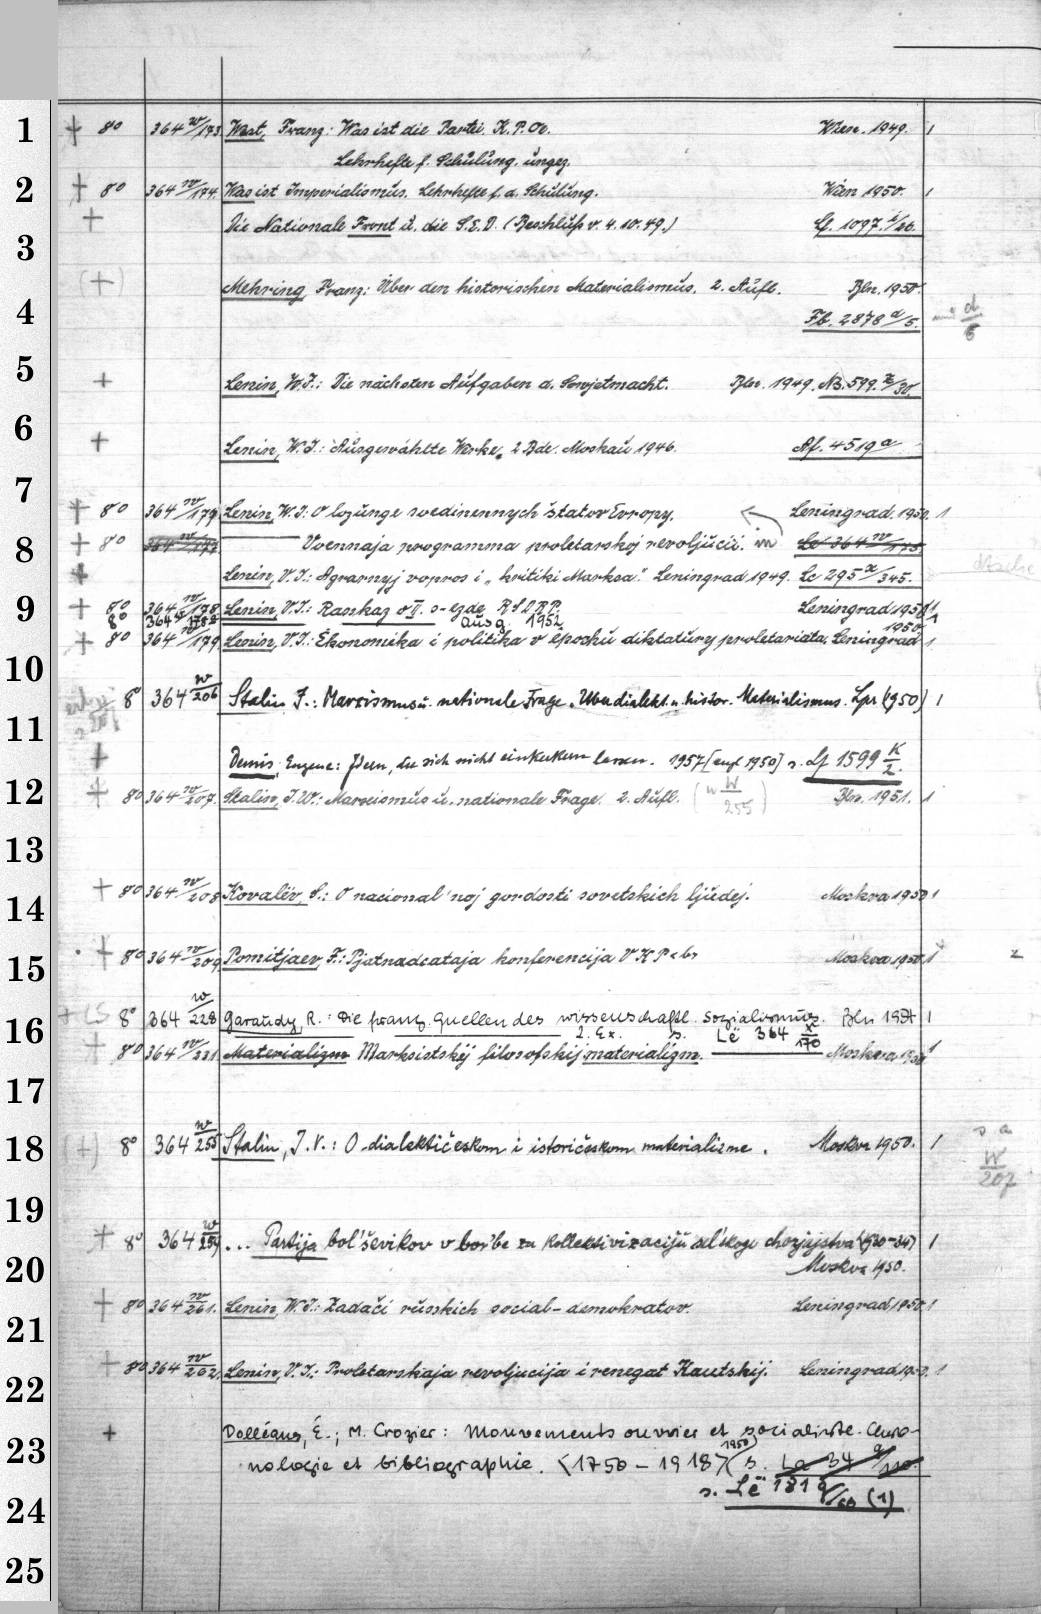 1 + 8° 364 w/173 West, Franz: Was ist die Partei. K.P.Oe. Wien. 1949. 1
Lehrhefte f. Schulung. ungez.
2 + 8° 364 w/174. Was ist Imperialismus. Lehrhefte f. d. Schulung. Wien 1950. 1
+ Die Nationale Front u. die S.E.D. (Beschluß v. 4.10.49.) Lf. 1097. /26.
3
(+) Mehring, Franz: Über den historischen Materialismus. 2. Aufl. Bln. 1950.
4 Fb. 2878 a/5. d/6
5 + Lenin, W.I.: Die nächsten Aufgaben d. Sowjetmacht. Bln. 1949. Nb. 599. /30.
6 + Lenin, W.I.: Ausgewählte Werke. 2 Bde. Moskau 1946. Af. 4519 a
7
+ 8° 364 w/177 Lenin, W.I: O lozunge soedinennych štatov Evropy. Leningrad. 1950. 1
8 + 8° 364 w/177 Voennaja programma proletarskoj revoljucii. in Le 364 w/175
+ Lenin, V.I.: Agrarnyj vopros i „kritiki Marksa". Leningrad 1949. Le 295 x/345.
9 + 8° 364 w/178 Lenin, V.I.: Rasskaz o II. s-ezde RSDRP. Leningrad 1950 1
8° 364 w 178a Ausg. 1952 1
+ 8° 364 w/179 Lenin, V.I.: Ekonomika i politika v épochu diktatury proletariata. Leningrad 1950 1
10
8° 364 w/206 Stalin J.: Marxismus u. nationale Frage. Über dialekt. u. histor. Materialismus. Lpz (1950) 1
11
+ Dennis, Eugene: Ideen, die sich nicht einkerkern lassen. 1957 [1950] s. Lf 1599 K/2.
12 + 8° 364 w/207. Stalin, J.W.: Marxismus u. nationale Frage. 2. Aufl. ( W/255 ) Bln. 1951. 1
13
+ 8° 364 w/208 Kovalëv, S.: O nacional'noj gordosti sovetskich ljudej. Moskva 1950 1
14
+ 8° 364 w/209 Pomitjaev, F.: Pjatnadcataja konferencija VKP<b> Moskva 1950 1
15
8° 364 w/228 Garaudy, R.: Die franz. Quellen des wissenschaftl. Sozialismus. Bln 1
16 2. Ex. s. Lë 364 x/170
+ 8° 364 w/231. Materializm Marksistskij filosofskij materializm. Moskva 1950 1
17
18 (+) 8° 364 w/255 Stalin, J.V.: O dialektičeskom i istoričeskom materializme. Moskva 1950. 1 s a W/207
19
+ 8° 364 w/259 ... Partija bol'ševikov v bor'be za kollektivizaciju sel'skogo chozjajstva (1930-34) 1
20 Moskva 1950.
+ 8° 364 w/261. Lenin, W.I.: Zadači russkich social-demokratov. Leningrad 1950. 1
21
+ 8° 364 w/262. Lenin, V.I.: Proletarskaja revoljucija i renegat Kautskij. Leningrad 1950. 1
22
+ Dolléans, É.; M. Crozier: Mouvements ouvrier et socialiste. Chro-
23 nologie et bibliographie. <1750-1918> (1950) s. La 34 q/110.
24 s. Lë 181 q/60 (1)
25